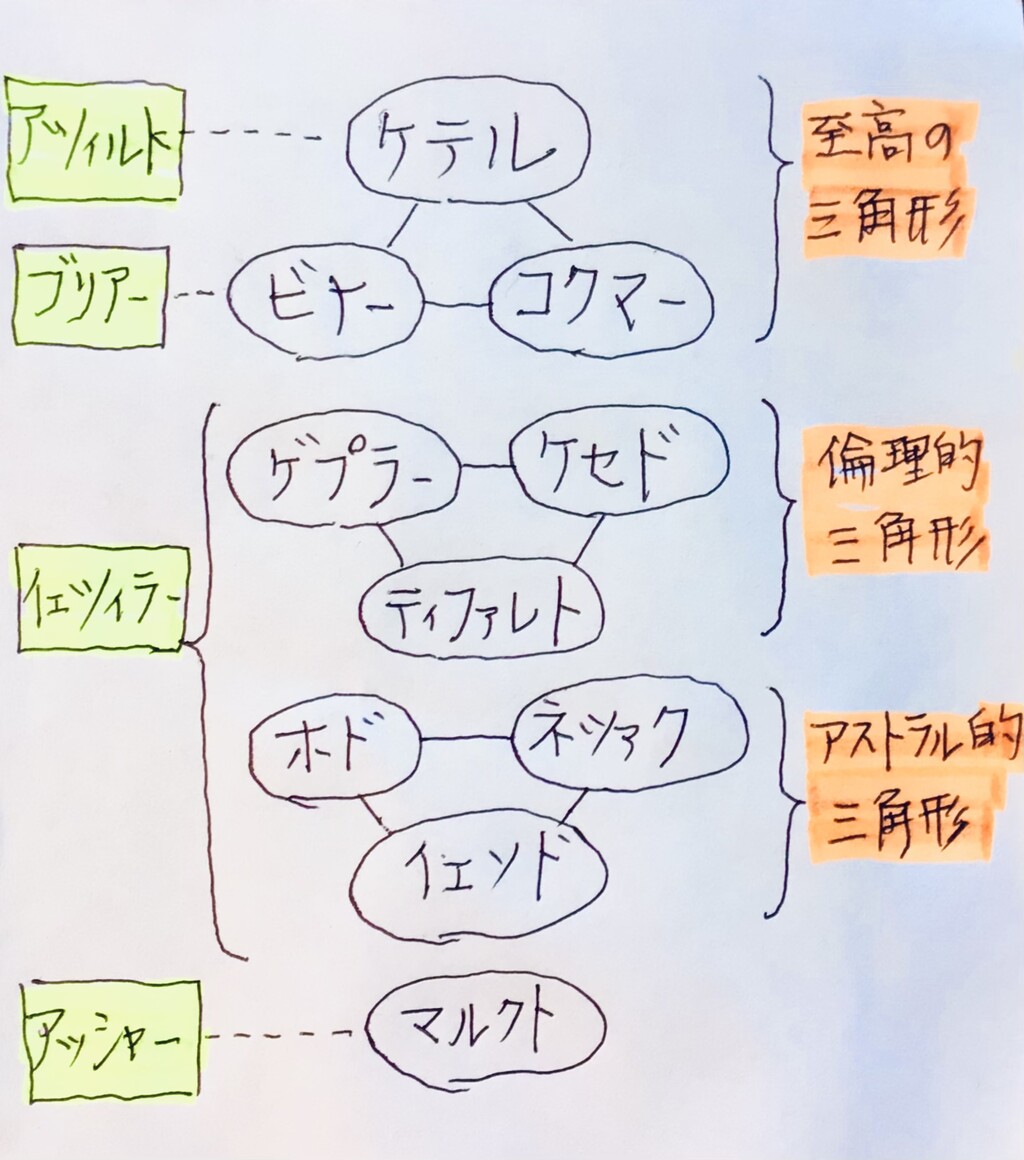 アツィルト
ケテル
至高の
三角形
ブリアー
ビナー
コクマー
ゲプラー
ケセド
倫理的
三角形
イェツィラー
ティファレト
ホド
ネツァク
アストラル的
三角形
イェソド
アッシャー
マルクト